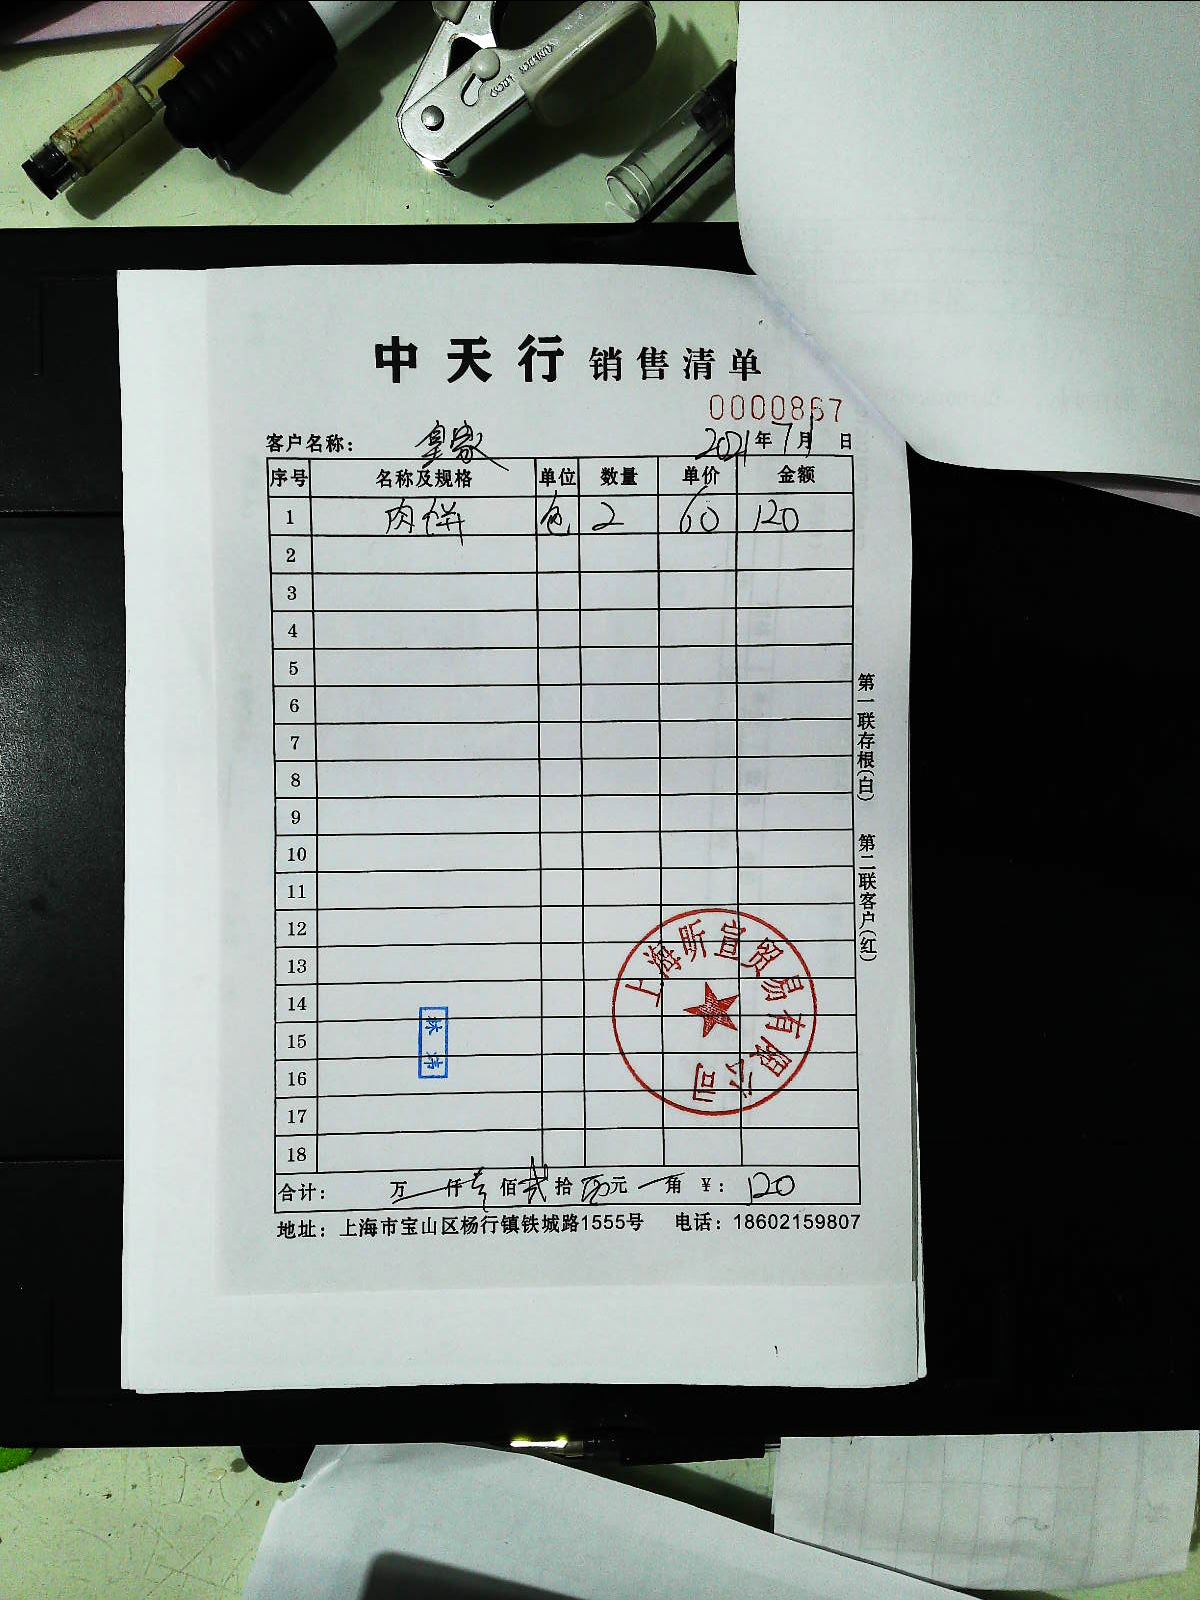 中天行 销售清单
0000867
客户名称： 皇家 2021年7月1日
序号 名称及规格 单位 数量 单价 金额
1 肉饼 包 2 60 120
2
3
4
5
6
7
8
9
10
11
12
13
14
15
16
17
18
上海昕宣贸易有限公司
合计： 万 仟 壹 佰 贰 拾 元 角 ￥： 120
地址：上海市宝山区杨行镇铁城路1555号 电话：18602159807
第一联存根(白) 第二联客户(红)